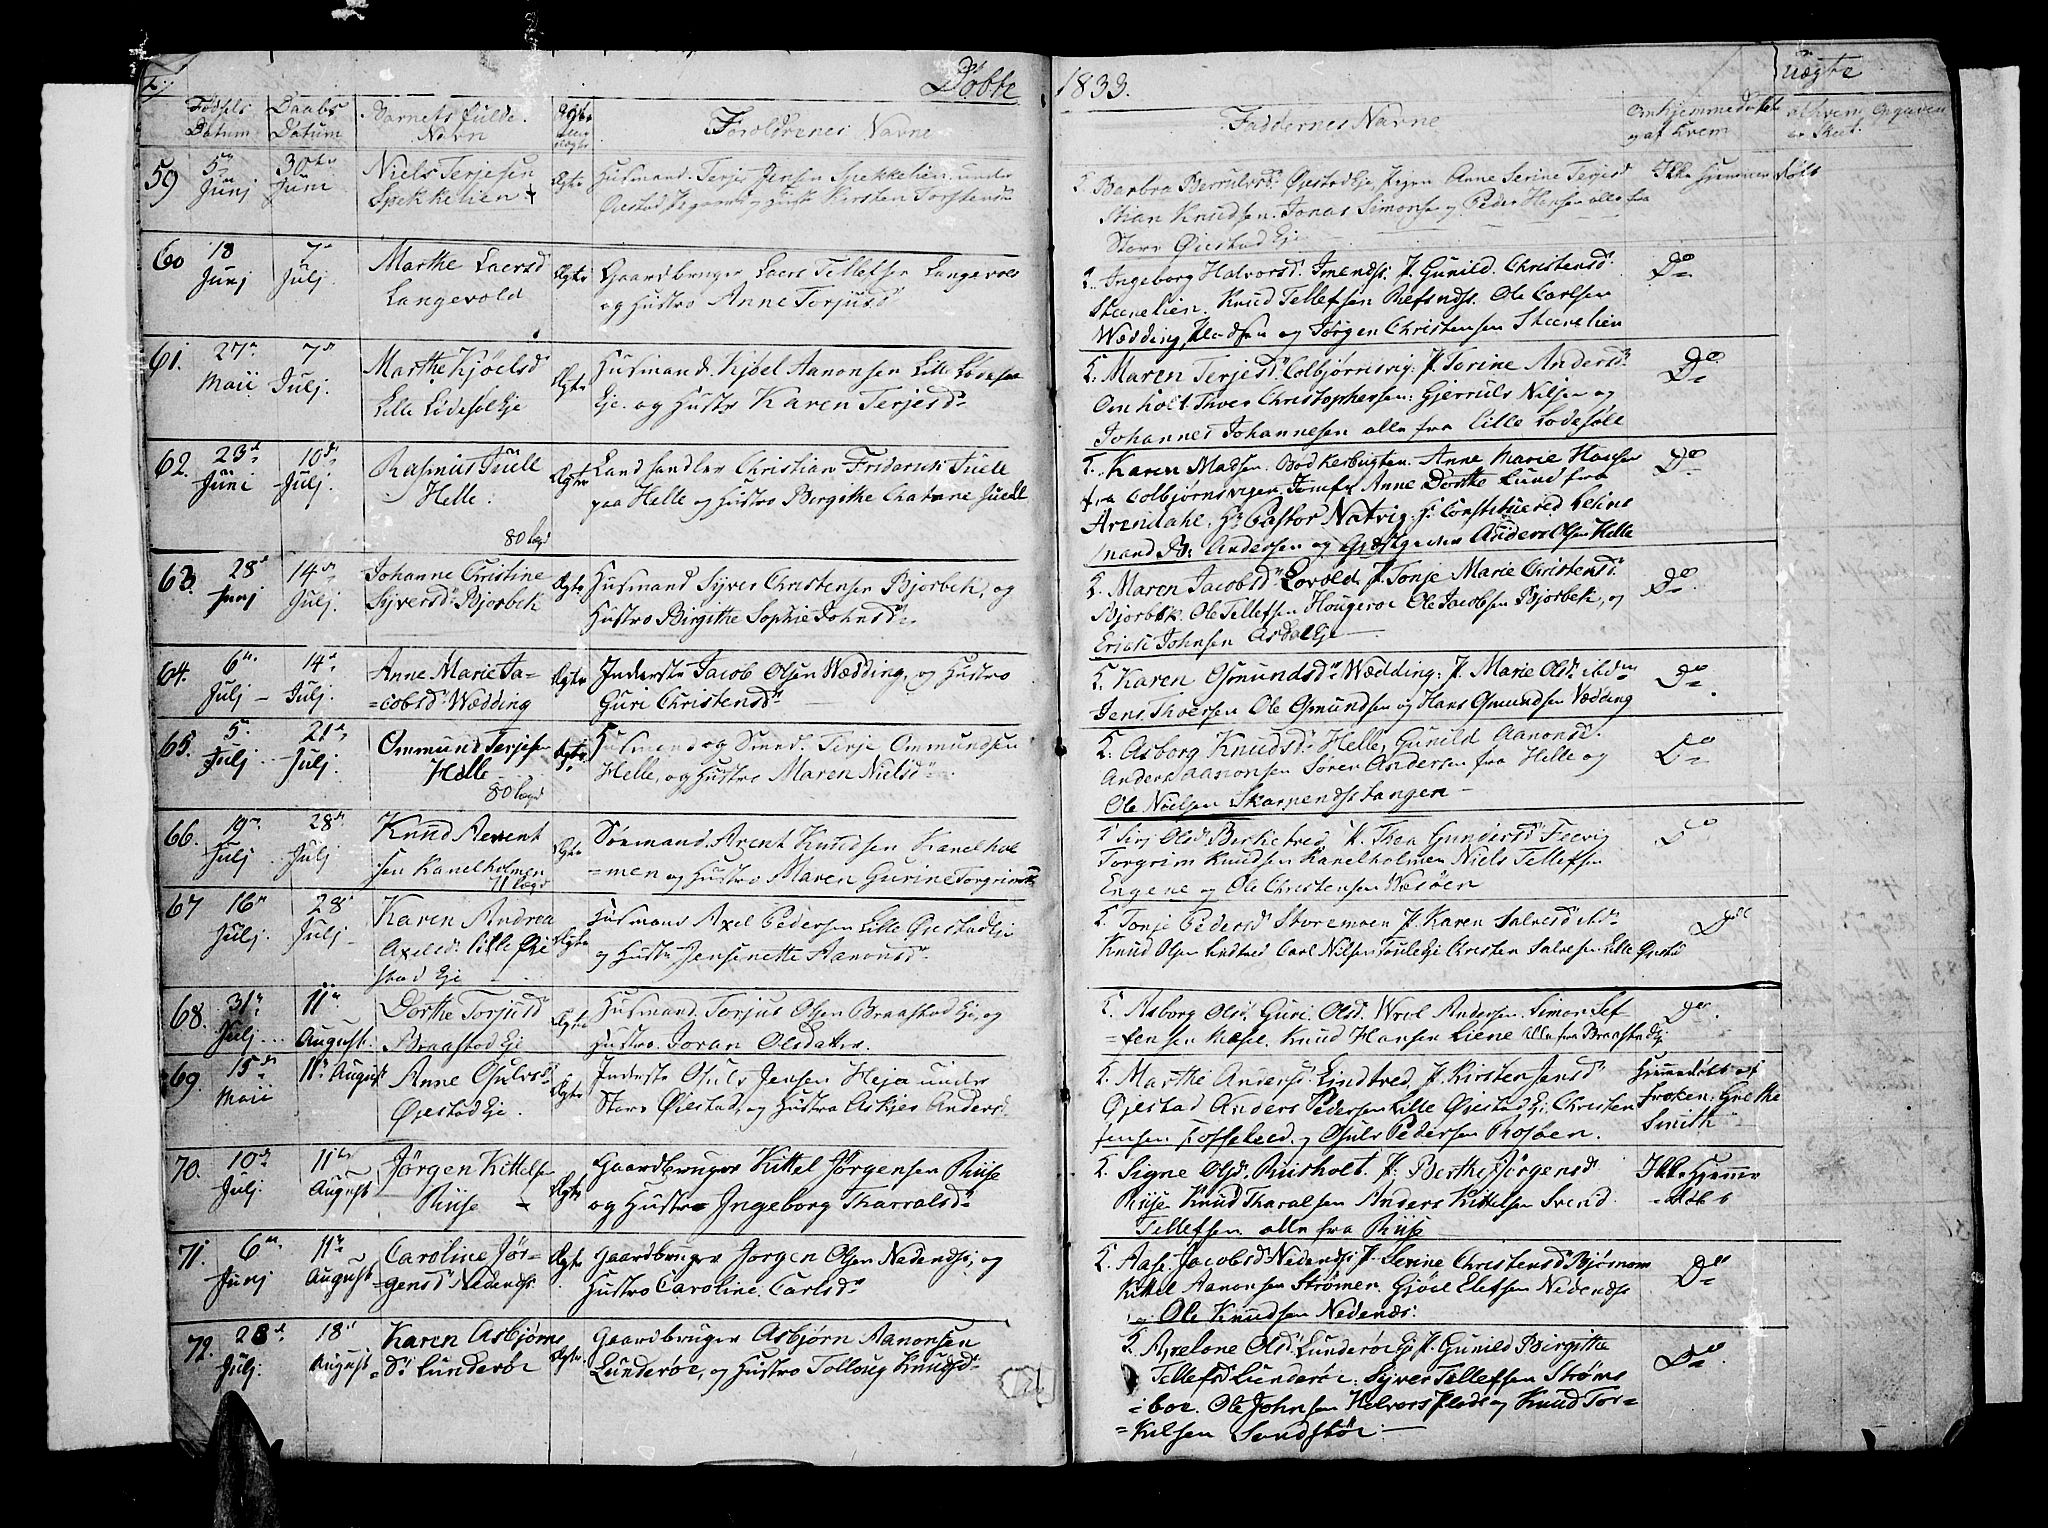 Døbte 1833.
uægte
Fødsels Datum
Daabs Datum
Barnets fulde Navn
Forældrenes Navne
Faddernes Navne
Om hjemmedøbt og af hvem
59 5 Junj 30 Juni Niels Terjesen Spekkelien
Ægte Husmand Terje Jensen Spekkelien under
Øiestad og Kirsten
Barbra Øiestad Eje, P. Anne Serine Terjesd
Stian Knudsen. Jonas Simonsen og Peder Hansen alle fra
Store Øiestad Eje
Ikke Hjemmedøbt
60 18 Junj 7 Julj Marthe Laersd Langevold
Ægte Gaardbruger Laers Tellefsen Langevold
og Hustro Anne Torjusd
K. Ingeborg Halvorsd. P. Gunild Christensd
Stærelien. Knud Tellefsen Refsnds. Ole Carlsen
Wædding, og Jørgen Christensen Stærelien
Do
61. 27 Maii 7 Julj. Marthe Kjøelsd Lille Lødesøl Eje
Ægte Husmand Kjøel Aanonsen Lille Lødesøl
Eje og Hustro Karen Terjesd
K. Maren Terjesd Colbjørnsvig. P. Torine Andersd
Omholt. Thoer Christophersen. Gjerruls Nilsen og
Johannes Johannesen alle fra Lille Lødesøll
Do
62. 23 Juni 10 Julj. Rasmus Juell Helle.
80 lagd
Ægte Landhandler Christian Friderich Juell
paa Helle og Hustro Birgithe Chatrine Juell
Karen Madsen. Bødkerbugten. Anne Marie Hansen
fra Colbjørnsvigen. Jomfr Anne Dorthe Lund fra
Arendahl. Hr Pastor Natvig. Hr Constituered
mand B. Andersen og Gjæstgever Anders Olsen Helle
Do
63. 28 Junj 14 Julj. Johanne Christine Syversd Bjorbek
Ægte Husmand Syver Christensen Bjorbek, og
Hustro Birgithe Sophie Johnsd
K. Maren Jacobsd Lovold. P. Tonje Marie Christensd
Bjorbek. Ole Tellefsen Hougeroe Ole Jacobsen Bjorbek, og
Erich Johnsen Asdal Eje
Do
64. 6 Julj 14 Julj. Anne Marie Ja=
=cobsd Wædding
Ægte Inderste Jacob Olsen Wædding, og Hustro
Guri Christensd
K. Karen Osmundsd Wædding. P. Marie Olsd ibdm
Jens Thoersen Ole Osmundsen og Hans Osmundsen Wædding
Do
65. 5. Julj 21 Julj. Ommund Terjesen Helle
80 lagd
Ægte Husmand og Smed Terje Ommundsen
Helle, og Hustro Maren Nielsd
K. Asborg Knudsd Helle, Gunild Aanonsd.
Anders Aanonsen Søren Andersen fra Helle og
Ole Nielsen Skarpendstangen
Do
66. 19 Julj 28 Julj Knud Arent
sen Kanelholmen
71 lagd
Ægte Sømand Arent Knudsen Kanelhol
=men og Hustro Maren Gurine Torgrimsd
K. Siri Olsd Birketved P. Thea Gundersd Feevig
Torgrim Knudsen Kanelholmen Niels Tellefsen
Engene og Ole Christensen Wesøen
Do
67 16 Julj. 28 Julj Karen Andrea
Axelsd Lille Øie
stad Eje
Ægte Husmand Axel Pedersen Lille Øiestad Eje
og Hustro Jensenette Aanonsd
K. Tonje Pedersd Storemoen P. Karen Salvesd ibd
Knud Olsen Lindtved Carl Nilsen Christen Salvesen Lille Øjestd
Do
68. 31 Julj 11 August. Dorthe Torjusd
Braastad Eje
Ægte Husmand. Torjus Olsen Braastad Eje, og
Hustro Joran Olsdatter.
K. Asborg Olsd. Guri Olsd. Wrol Andersen. Simon Tef
=fensen Knud Hansen Liene alle fra Braastad Eje
Do.
69. 15 Maii 11 August Anne Osulvsd
Øiestad Eje.
Ægte Inderste Osuls Jensen Heja under
Store Øiestad, og Hustro Askjer Andersd.
K. Marthe Andersd Lindtved, P. Kirsten Jensd
Øjestad Anders Pedersen Lille Øiestad Ej. Christen
Jensen og Osuls Pedersen Rosøen.
Hjemmedøbt af
Frøken Grethe
Smith
70. 10 Julj. 11 August Jørgen Kittelsen
Riise
Ægte Gaardbruger Kittel Jørgensen Riise
og Hustro Ingeborg Tharralsd
K. Signe Olsd. Riisholt. P. Berthe Jørgensd
Riise Knud Tharalsen Anders Kittelsen Svend
Tellefsen alle fra Riise
Ikke Hjemme
=døbt
71. 6 Junj 11 August Caroline Jør-
=gensd Nedends
Ægte Gaardbruger Jørgen Olsen Nedends, og
Hustro Caroline Carlsd
K. Aase Jacobsd Nedends P. Serine Christensd Bjørnom
Kittel Aanonsen Strømen. Gjøel Elefsen Nedends
og Ole Knudsen Nedenæs.
Do
72. 23 Julj. 18 August Karen Asbjørns
=D. Lunderøe
Ægte Gaardbruger Asbjørn Aanonsen
Lunderøe, og Hustro Tollaug Knudsd
K. Axelone Olsd Lunderøe Ej P. Gunild Birgitte
Tellefsd Lunderøe. Syver Tellefsen Strøms
=boe. Ole Johnsen Halvors Plads og Knud Tor=
=kilsen Sandstøe.
Do.